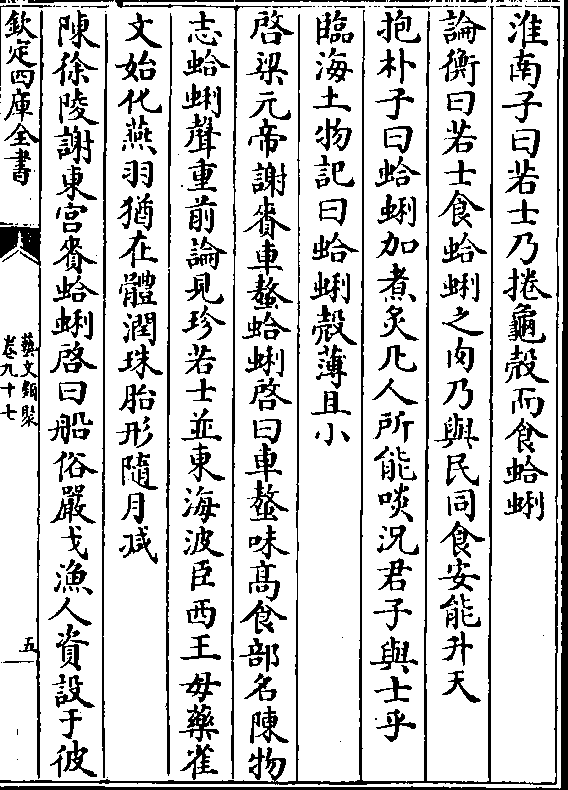 淮南子曰若士乃捲龜殼而食蛤蜊
論衡曰若士食蛤蜊之肉乃與民同食安能升天
抱朴子曰蛤蜊加煮炙凡人所能啖況君子與士乎
臨海土物記曰蛤蜊殼薄且小
啓梁元帝謝賚車螯蛤蜊啓曰車螯味髙食部名陳物
志蛤蜊聲重前論見珍若士並東海波臣西王母藥雀
文始化燕羽猶在體潤珠胎形隨月減
陳徐陵謝東宫賚蛤蜊啓曰船俗嚴戈漁人資設于彼
欽定四庫全書
藝文類聚
卷九十七
五